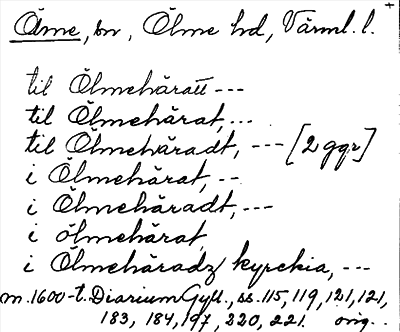 Ölme, sn, Ölme hd, Värml. l. +
til Ölmehäratt ---
til Ölmehärat, ---
til Ölmehäradt, --- [2 ggr]
i Ölmehärat, --
i Ölmehäradt, ---
i ölmehärat,
i Ölmehäradz kyrckia, ---
m. 1600-t. Diarium Gyll., ss. 115, 119, 121, 121,
183, 184, 197, 220, 221. orig.